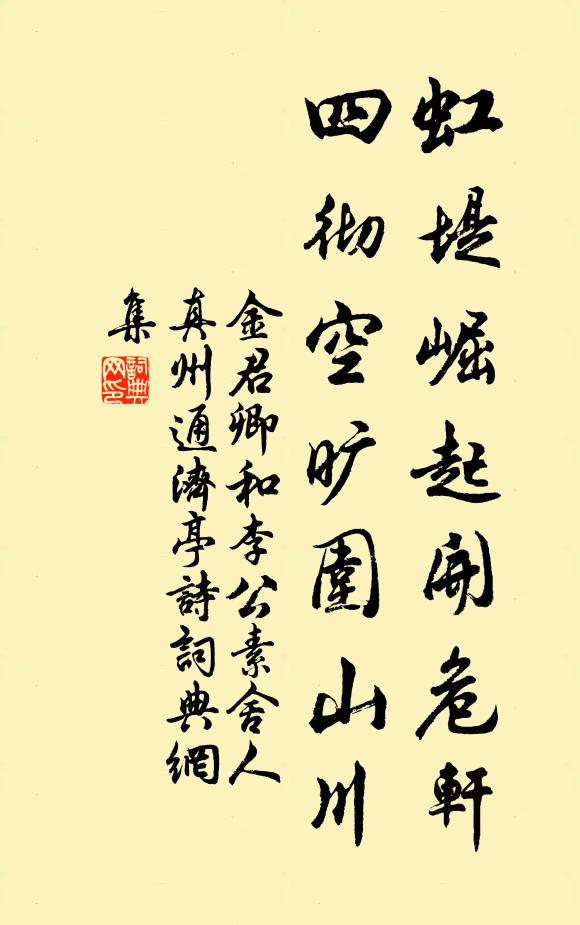 虹堤崛起開危軒
四彻空旷圍山川
金君卿和李公素舍人
真州通濟亭詩詞典網
集
詞典网印